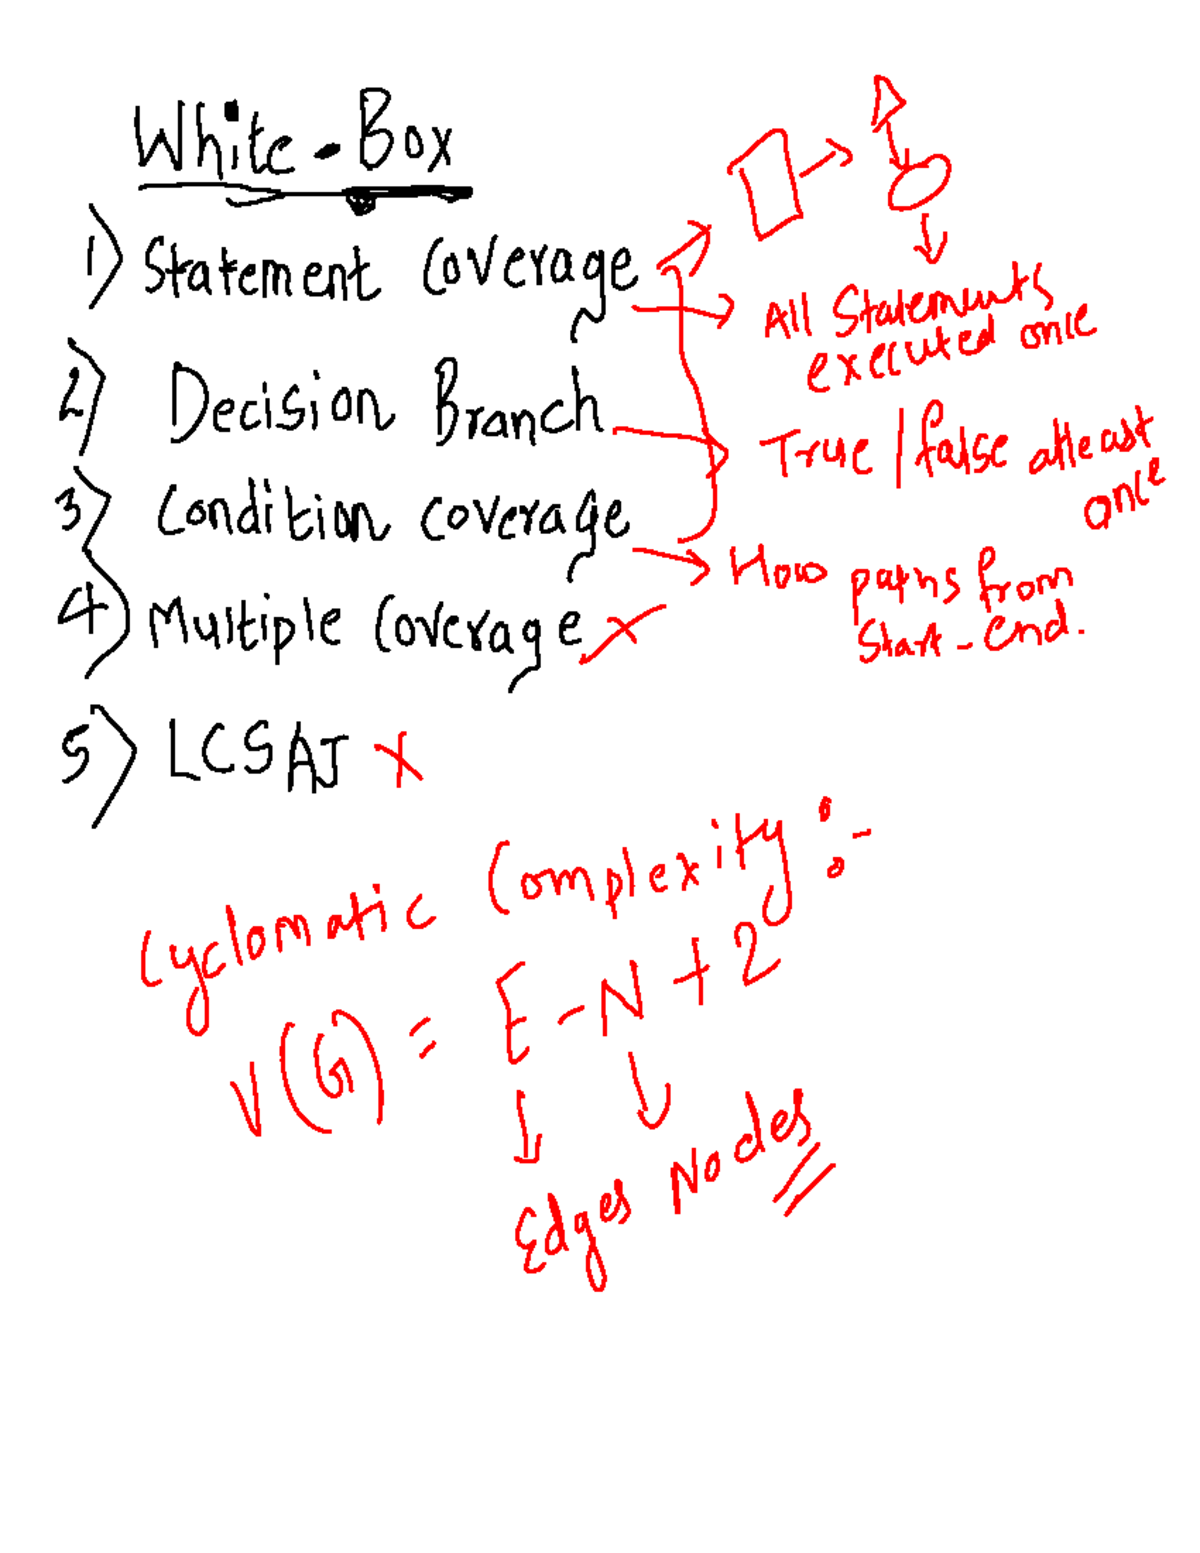 White-Box
1) Statement Coverage
All Statements
executed once
2) Decision Branch
True/false atleast
once
3) Condition coverage
How paths from
Start-End.
4) Multiple Coverage x
5) LCSAJ x
Cyclomatic Complexity :-
V(G) = E-N+2
Edges Nodes